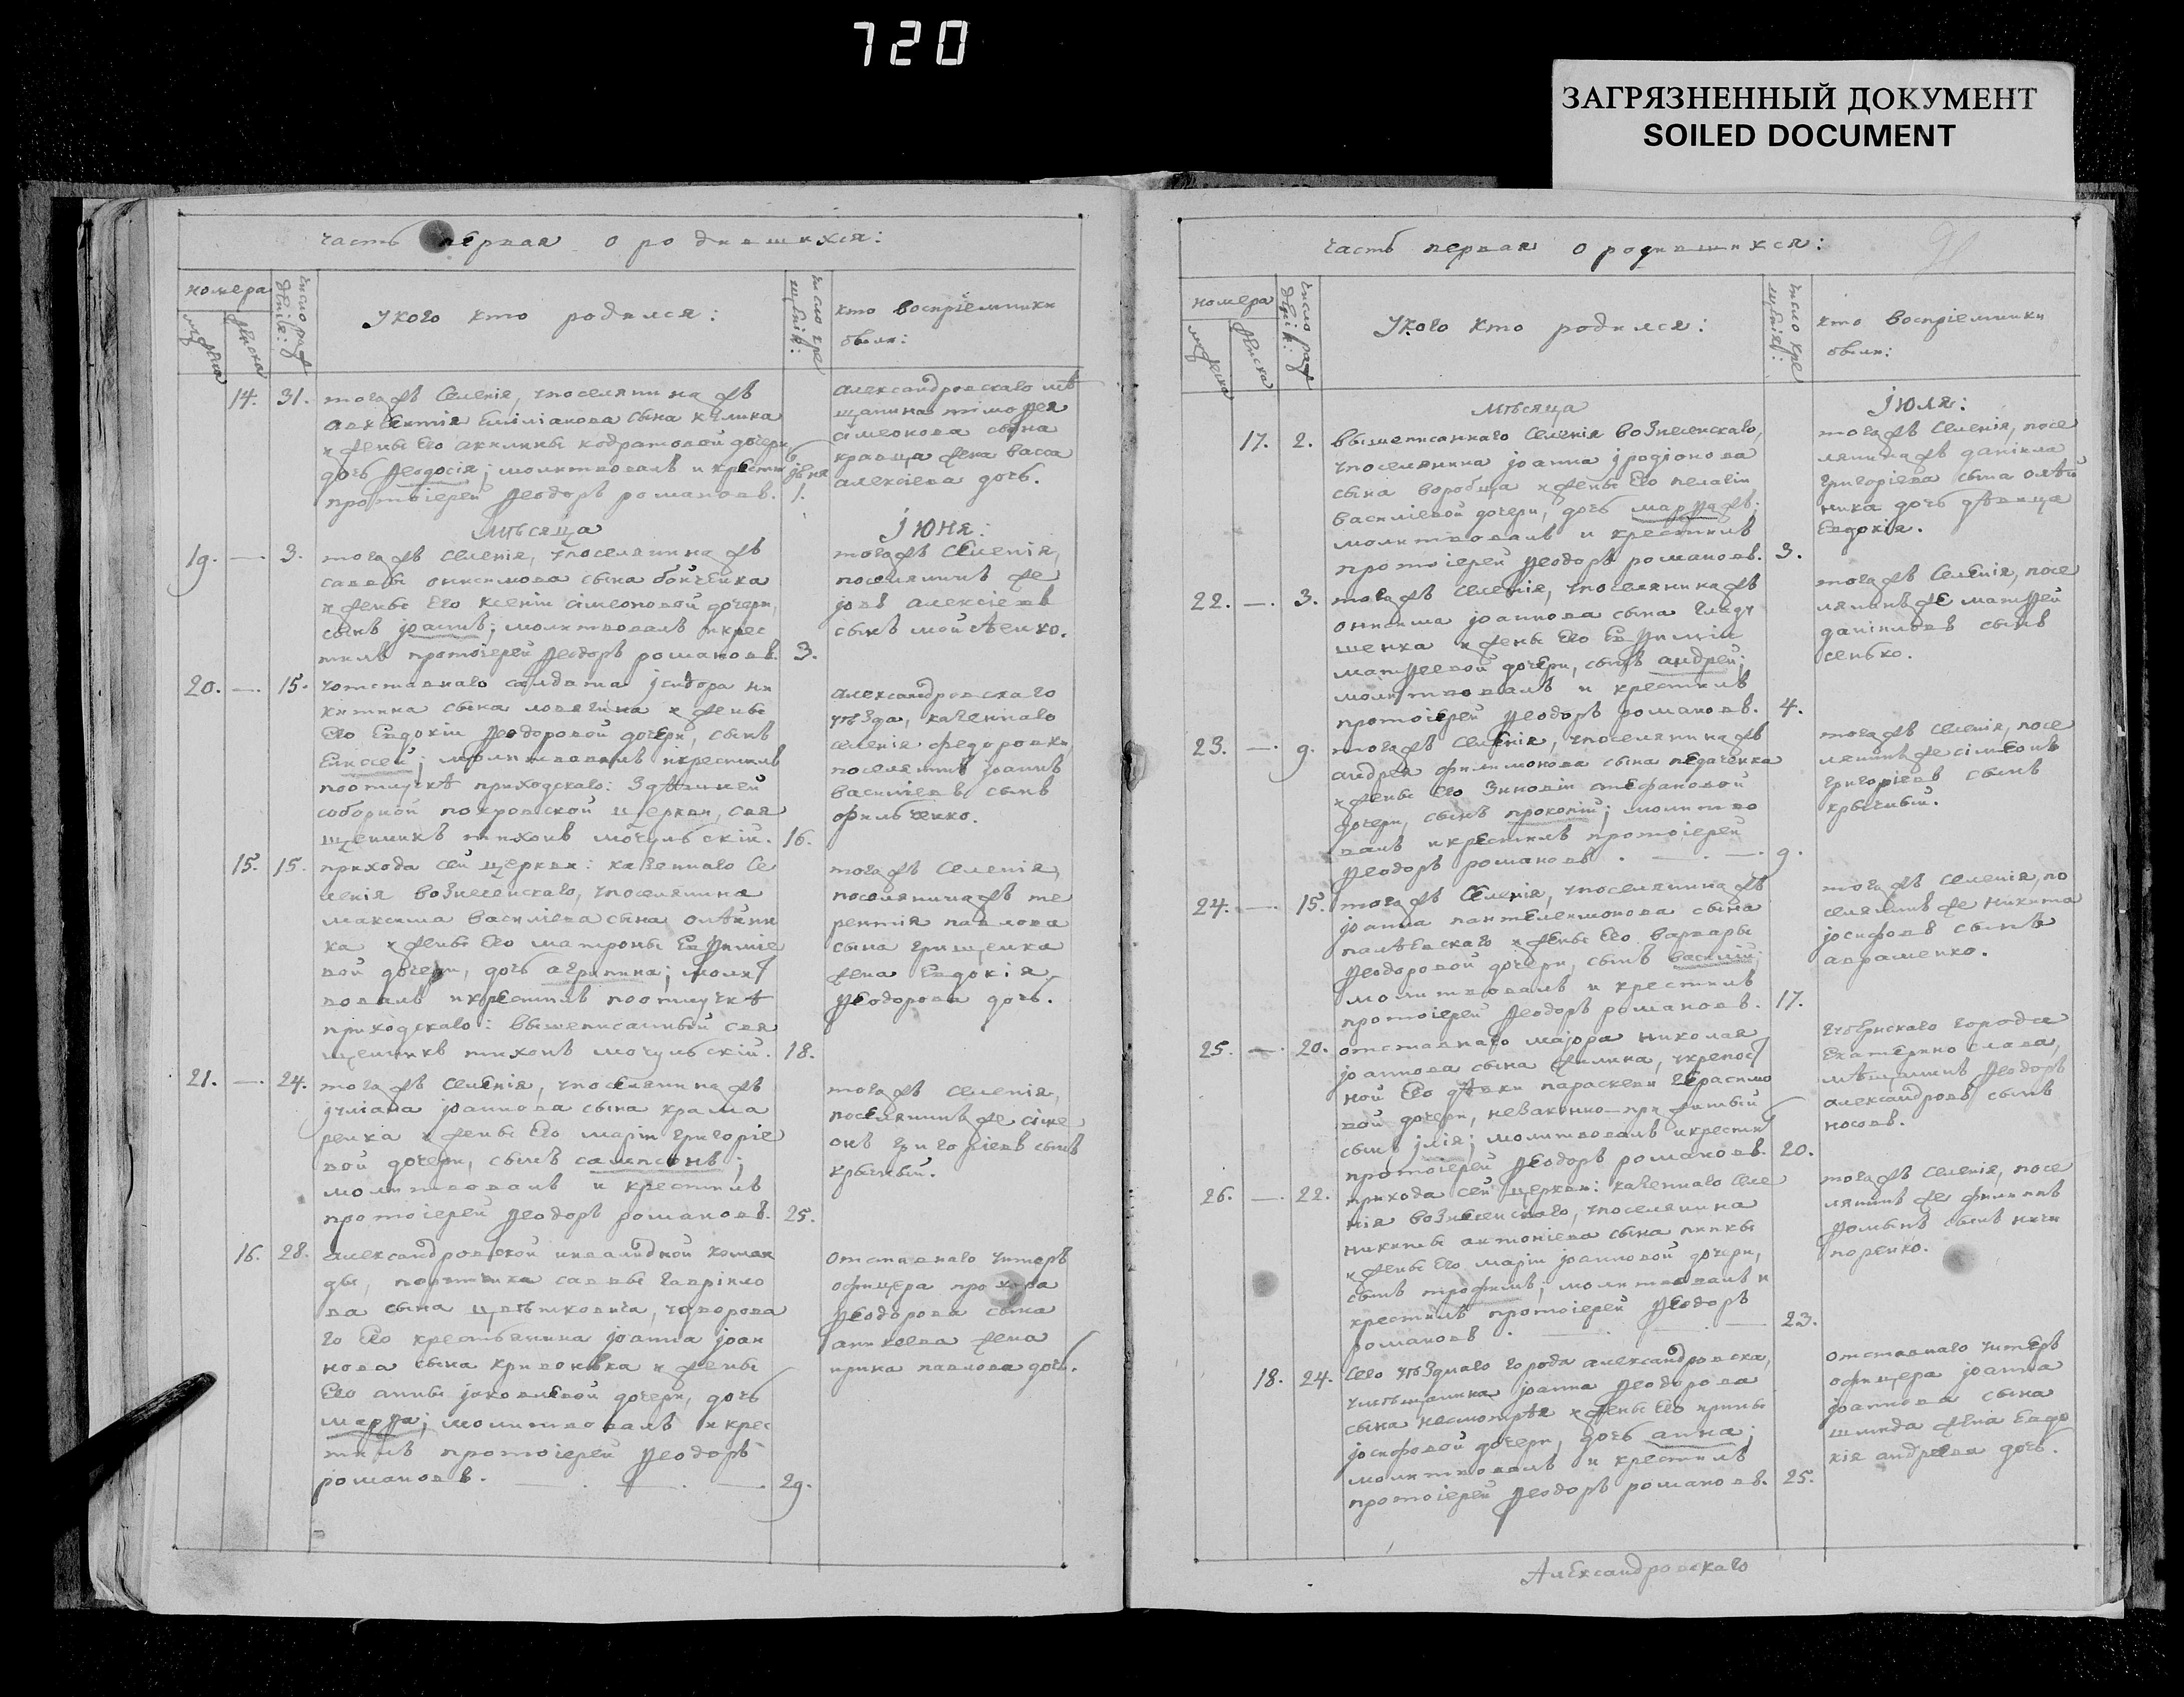 720
ЗАГРЯЗНЕННЫЙ ДОКУМЕНТ
SOILED DOCUMENT
часть первая о родившихся:
номера
число рожденія:
У кого кто родился:
число крещенія:
кто воспріемники
были:
14. 31. тогожъ селенія, упоселянинажъ
авксентія емиліанова сына кулика
и жены его акилины кодратовой дочери,
дочь Ѳеодосія; молитвовалъ и крестил
протоіерей Ѳеодоръ романовъ.
іюня
1.
александровскаго мѣ
щанина тімоѳея
сімеонова сына
кравца жена васса
алексіева дочь.
Мѣсяца Іюня:
19. — 3. тогожъ селенія, упоселянинажъ
саввы онисимова сына бойченка
и жены его ксеніи сімеоновой дочери,
сынъ іоаннъ; молитвовалъ и крес
тилъ протоіерей Ѳеодоръ романовъ. 3.
тогожъ селенія,
поселянинъ же
іовъ алексіевъ
сынъ мойсѣенко.
20. — 15. уотставнаго салдата ісидора ни
китина сына ловягина и жены
его евдокіи Ѳеодоровой дочери, сынъ
елисей; молитвовалъ и крестилъ
поотлучкѣ приходскаго: здѣшней
соборной покровской церкви, свя
щенникъ тихонъ мочульскій. 16.
александровскаго
уѣзда, казеннаго
селенія федоровки
поселянинъ іоаннъ
василіевъ сынъ
фильченко.
15. 15. прихода сей церкви: казеннаго се
ленія вознесенскаго, упоселянина
максима василіева сына олѣйни
ка и жены его матроны евѳиміе
вой дочери, дочь агрипина; молит
вовалъ и крестилъ поотлучкѣ
приходскаго: вышеписанный свя
щенникъ тихонъ мочульскій. 18.
тогожъ селенія,
поселянинажъ те
рентія павлова
сына грищенка
жена евдокія
Ѳеодорова дочь.
21. — 24. тогожъ селенія, упоселянинажъ
іуліана іоаннова сына крама
ренка и жены его маріи григоріе
вой дочери, сынъ сампсонъ;
молитвовалъ и крестилъ
протоіерей Ѳеодоръ романовъ. 25.
тогожъ селенія,
поселянинъ же сіме
онъ григоріевъ сынъ
крычный.
16. 28. александровской инвалидной коман
ды, поручика саввы гавріило
ва сына цвѣтковича, удворова
го его крестьянина іоанна іоан
нова сына кривонѣка и жены
его анны іаковлевой дочери, дочь
марѳа; молитвовалъ и крес
тилъ протоіерей Ѳеодоръ
романовъ. — . — . — . 29.
отставнаго унтеръ
офицера прохора
Ѳеодорова сына
аникеева жена
ирина павлова дочь.
часть первая о родившихся:
91
номера
число рожденія:
У кого кто родился:
число крещенія:
кто воспріемники
были:
Мѣсяца Іюля:
17. 2. вышеписаннаго селенія вознесенскаго,
упоселянина іоанна іродіонова
сына воробца и жены его пелагіи
василіевой дочери, дочь марѳажъ;
молитвовалъ и крестилъ
протоіерей Ѳеодоръ романовъ. 3.
тогожъ селенія, посе
лянинажъ даніила
григоріева сына олѣй
ника дочь дѣвица
евдокія.
22. — 3. тогожъ селенія, упоселянинажъ
онисима іоаннова сына гладу
шенка и жены его евѳиміи
матѳеевой дочери, сынъ андрей;
молитвовалъ и крестилъ
протоіерей Ѳеодоръ романовъ. 4.
тогожъ селенія, посе
лянинъ же матѳей
даніиловъ сынъ
сенько.
23. — 9. тогожъ селенія, упоселянинажъ
андрея филимонова сына педаченка
и жены его зиновіи стефановой
дочери, сынъ прокопій; молитво
валъ и крестилъ протоіерей
Ѳеодоръ романовъ. — . — . 9.
тогожъ селенія, посе
лянинъ же сімеонъ
григоріевъ сынъ
крычный.
24. — 15. тогожъ селенія, упоселянинажъ
іоанна пантелеимонова сына
палѣевскаго и жены его варвары
Ѳеодоровой дочери, сынъ василій;
молитвовалъ и крестилъ
протоіерей Ѳеодоръ романовъ. 17.
тогожъ селенія, по
селянинъ же никита
іосифовъ сынъ
авраменко.
25. — 20. отставнаго маіора николая
іоаннова сына селина, укрепос
ной его дѣвки параскеви герасимо
вой дочери, незаконно-прижитый
сынъ илія; молитвовалъ и крестил
протоіерей Ѳеодоръ романовъ. 20.
губернскаго города
екатеринослава,
мѣщанинъ Ѳеодоръ
александровъ сынъ
носовъ.
26. — 22. прихода сей церкви: казеннаго селе
нія вознесенскаго, упоселянина
никиты антоніева сына липкы
и жены его маріи іоанновой дочери,
сынъ трофимъ; молитвовалъ и
крестилъ протоіерей Ѳеодоръ
романовъ. — . — . — 23.
тогожъ селенія, посе
лянинъ же филиппъ
Ѳоминъ сынъ ничи
поренко.
18. 24. сего уѣзднаго города александровска,
умѣщанина іоанна Ѳеодорова
сына несмотрѣя и жены его ирины
іосифовой дочери, дочь анна;
молитвовалъ и крестилъ
протоіерей Ѳеодоръ романовъ. 25.
отставнаго унтеръ
офицера іоанна
іоаннова сына
шмида жена евдо
кія андреева дочь.
Александровскаго